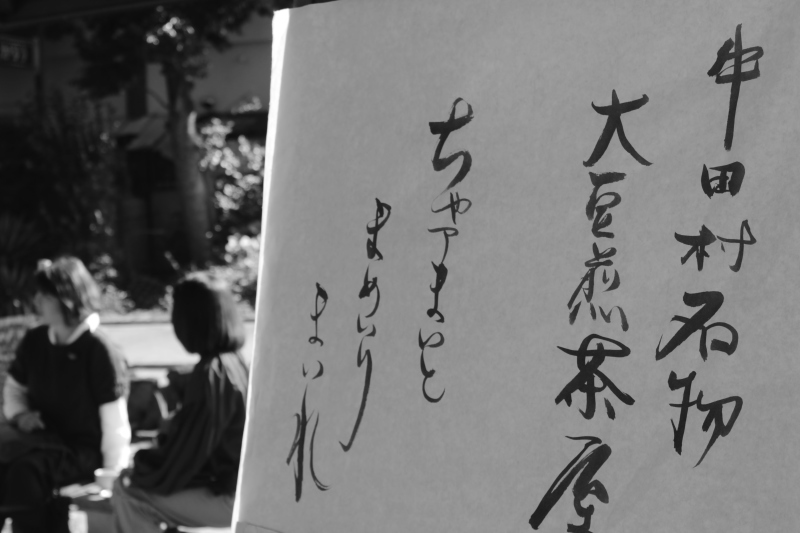 牛田村名物
大豆煎茶屋
ちゃアまいと
まめいり
まいれ